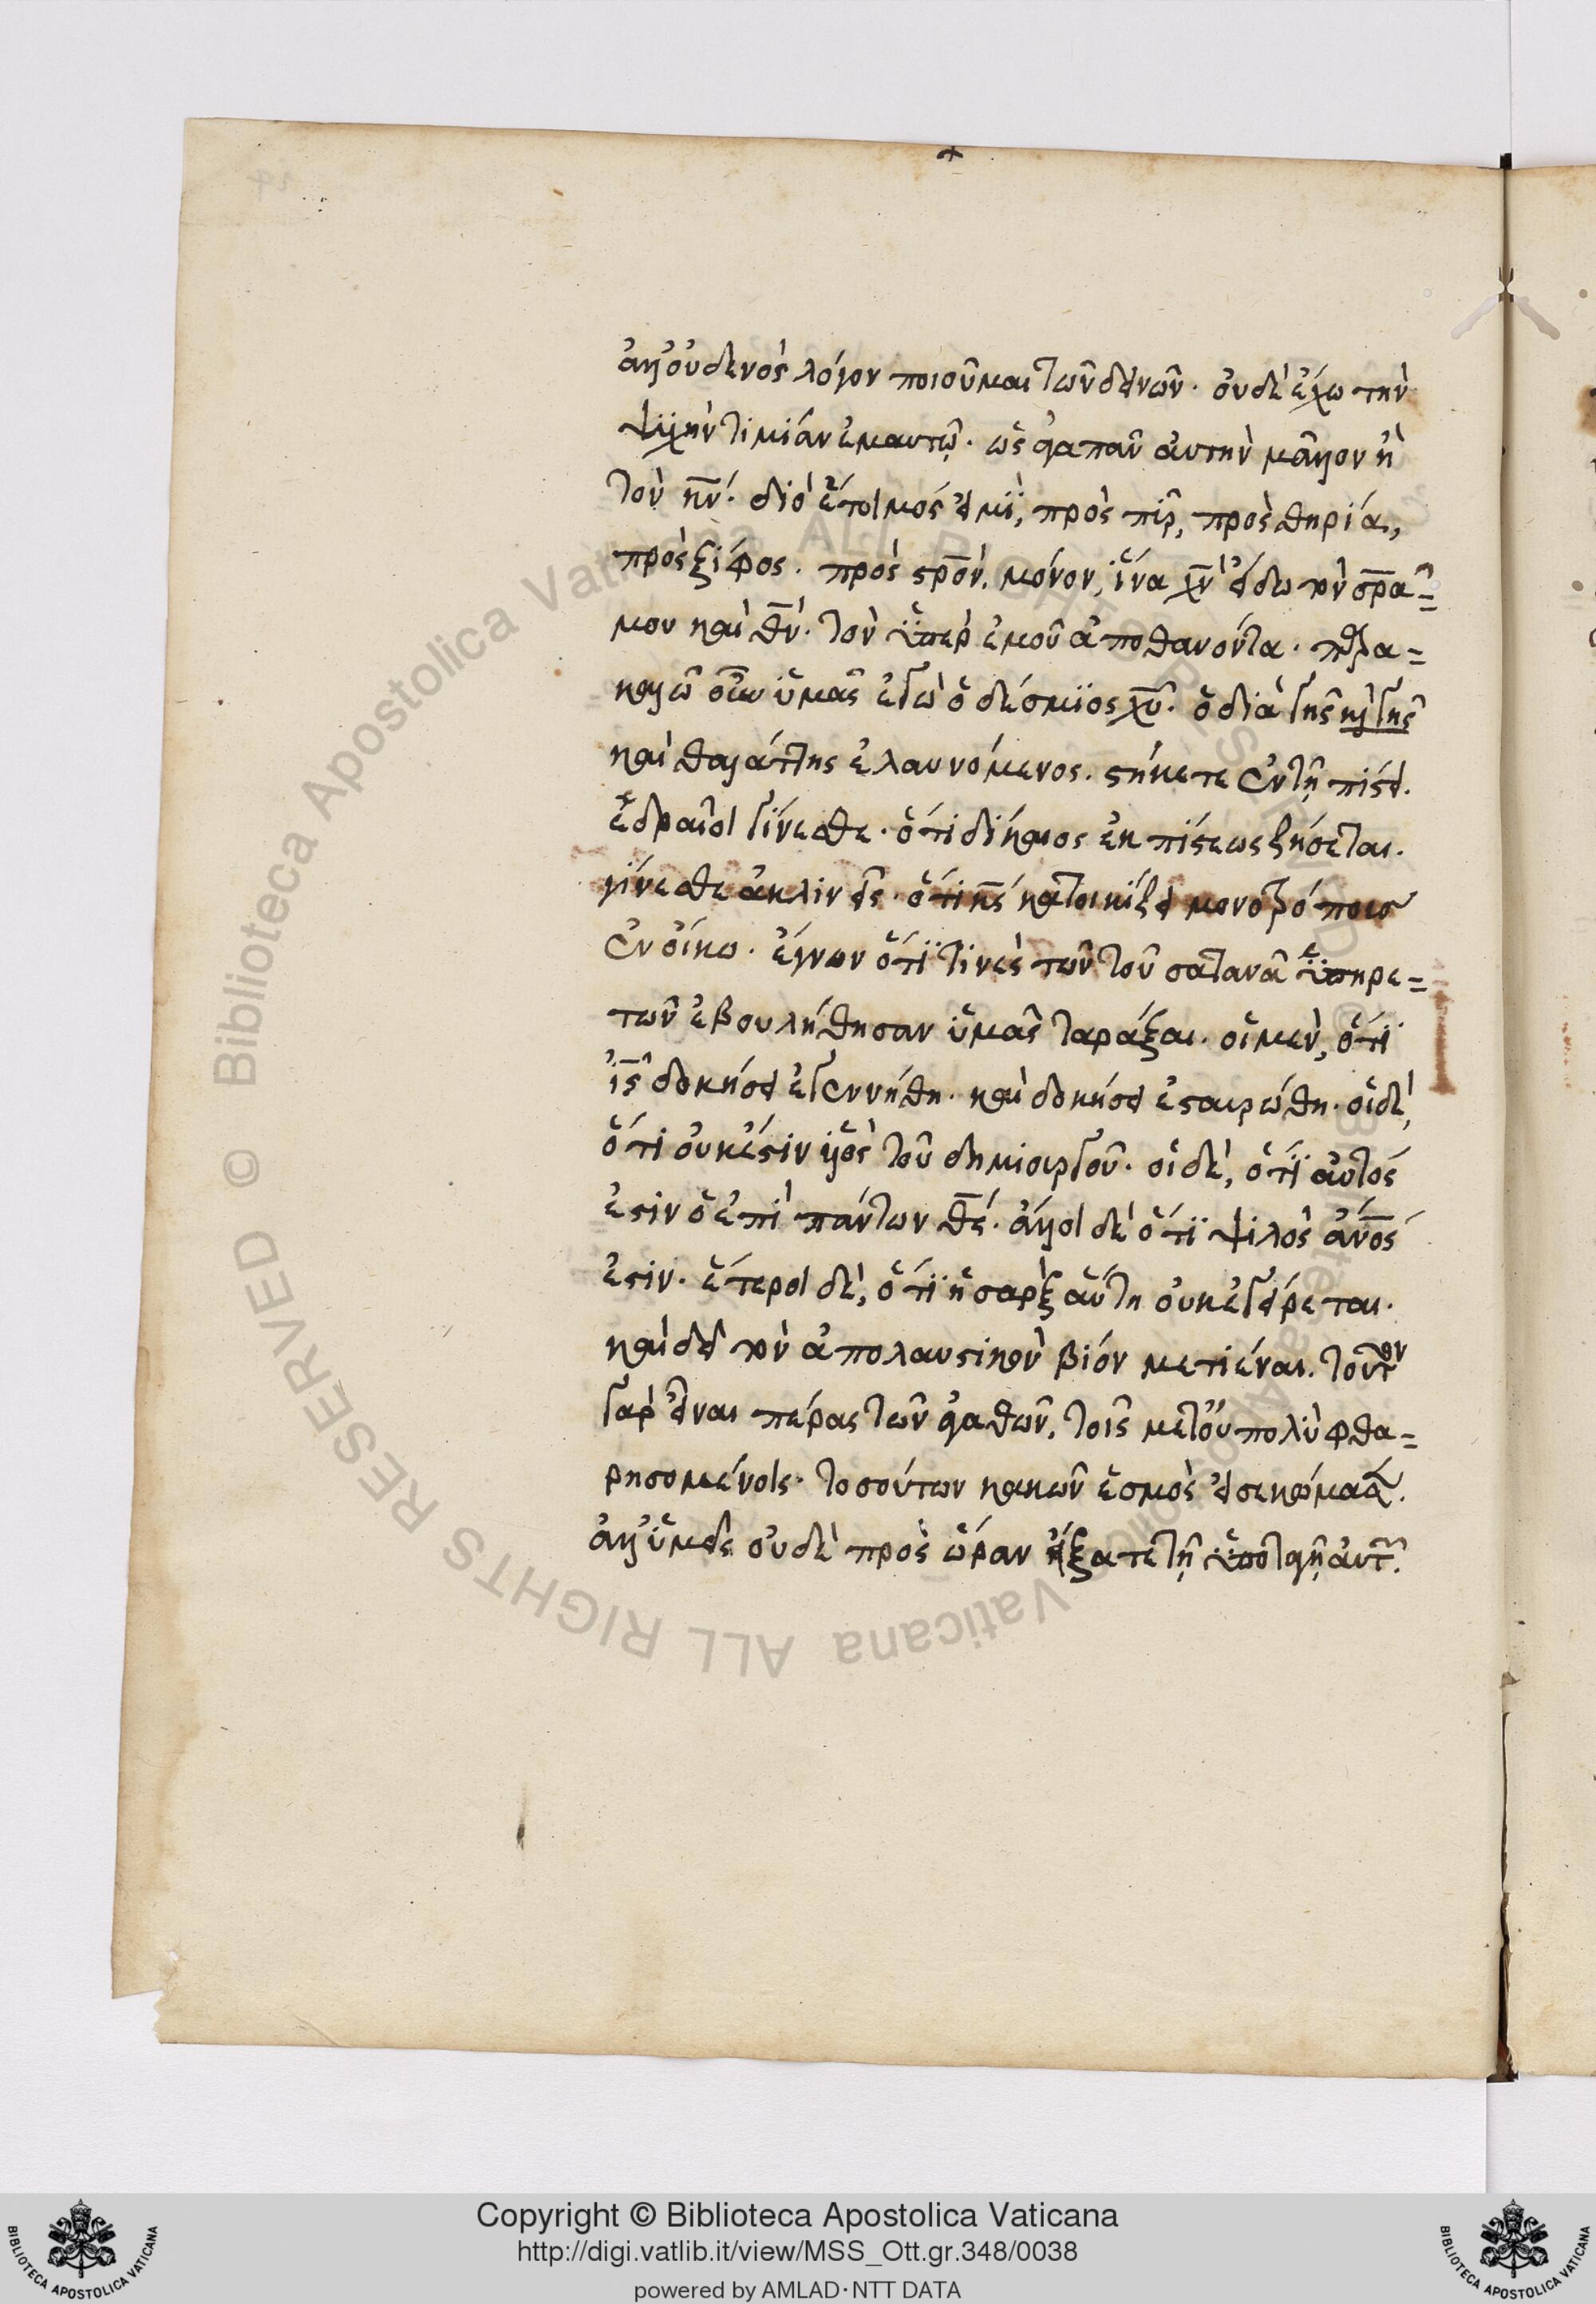 ἀλλ' οὐδενὸς λόγον ποιοῦμαι τῶν δεινῶν· οὐδὲ ἔχω τὴν
ψυχὴν τιμίαν ἐμαυτῷ· ὡς ἀγαπᾶν αὐτὴν μᾶλλον ἢ
τὸν κν̅· διὸ ἕτοιμός εἰμϊ, πρὸς πῦρ, πρὸς θηρία,
πρὸς ξίφος· πρὸς στρο̅ν, μόνον, ἵνα χν̅ εἴδω τὸν σρ̅α=
μου καὶ θν̅· τὸν ὑπὲρ ἐμοῦ ἀποθανόντα· παρα=
καλῶ οὖν ὑμᾶς ἐγὼ ὁ δέσμϊος χυ̅· ὁ διὰ γῆς κ γῆς
καὶ θαλάττης ἐλαυνόμενος· στήκετε ἐν τῇ πίστει.
ἑδραῖοι γίνεσθε· ὅτι δίκαιος ἐκ πίστεως ζήσεται.
γίνεσθε ἀκλινεῖς· ὅτι κς̅ κατοικίζει μονοτρόπους
ἐν οἴκω· ἔγνων ὅτϊ τινὲς τῶν τοῦ σατανᾶ ὑπηρε=
τῶν ἐβουλήθησαν ὑμᾶς ταράξαι· οἱ μὲν, ὅτϊ
ις̅ δοκήσει ἐγεννήθη· καὶ δοκήσει ἐσταυρώθη· οἱ δὲ,
ὅτι οὐκ ἔστιν υἱὸς τοῦ δημιουργοῦ· οἱ δὲ, ὅτϊ αὐτός
ἐστιν ὁ ἐπὶ πάντων θς̅· ἄλλοι δὲ ὅτϊ ψιλὸς ἄνο̅ς
ἐστιν· ἕτεροι δὲ, ὅτϊ ἡ σὰρξ αὕτη οὐκ ἐγείρεται·
καὶ δεῖ τὸν ἀπολαυστικὸν βίον μετιέναι. τοῦτον
γὰρ εἶναι πέρας τῶν ἀγαθῶν, τοῖς μετ' οὐ πολὺ φθα=
ρησομένοις· τοσούτων κακῶν ἑσμὸς εἰσεκώμασεν.
ἀλλ' ὑμεῖς οὐδὲ πρὸς ὥραν εἴξατε τῇ ὑποταγῇ αὐτῶν.
Copyright © Biblioteca Apostolica Vaticana
http://digi.vatlib.it/view/MSS_Ott.gr.348/0038
powered by AMLAD·NTT DATA